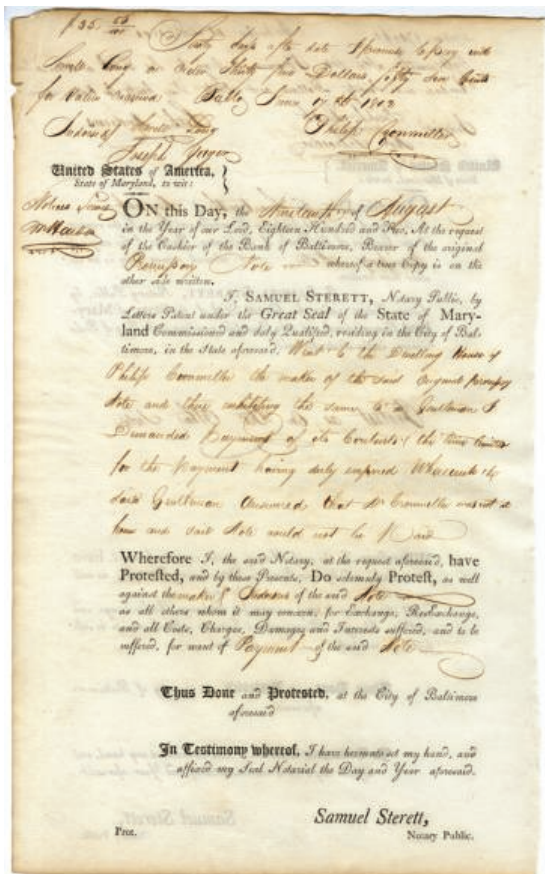 $35. 56/100
Sixty days after date I promise to pay unto
Long or order Thirty five Dollars, fifty six Cents
for Value Received Balto June 17th 1802
Indorsed Long Philip Cronmiller
Joseph
United States of America,
State of Maryland, to wit:
ON this Day, the Nineteenth of August
in the Year of our Lord, Eighteen Hundred and Two, At the request
of the Cashier of the Bank of Baltimore, Bearer of the original
Promissory Note whereof a true Copy is on the
other side written,
I, SAMUEL STERETT, Notary Public, by
Letters Patent under the Great Seal of the State of Mary-
land Commissioned and duly Qualified, residing in the City of Bal-
timore, in the State aforesaid, Went to the Dwelling House of
Philip Cronmiller the maker of the said original promissory
Note and there exhibiting the same to a Gentleman I
Demanded Payment of its Contents (the time limited
for the Payment having duly expired Whereunto the
said Gentleman answered that Mr Cronmiller was not at
home and said Note could not be Paid
Wherefore I, the said Notary, at the request aforesaid, have
Protested, and by these Presents, Do solemnly Protest, as well
against the maker & Indorsers of the said Note
as all others whom it may concern, for Exchange, ReExchange,
and all Costs, Charges, Damages and Interests suffered, and to be
suffered, for want of Payment of the said Note
Thus Done and Protested, at the City of Baltimore
aforesaid
In Testimony whereof, I have hereunto set my hand, and
affixed my Seal Notarial the Day and Year aforesaid.
Samuel Sterett,
Prot. Notary Public.